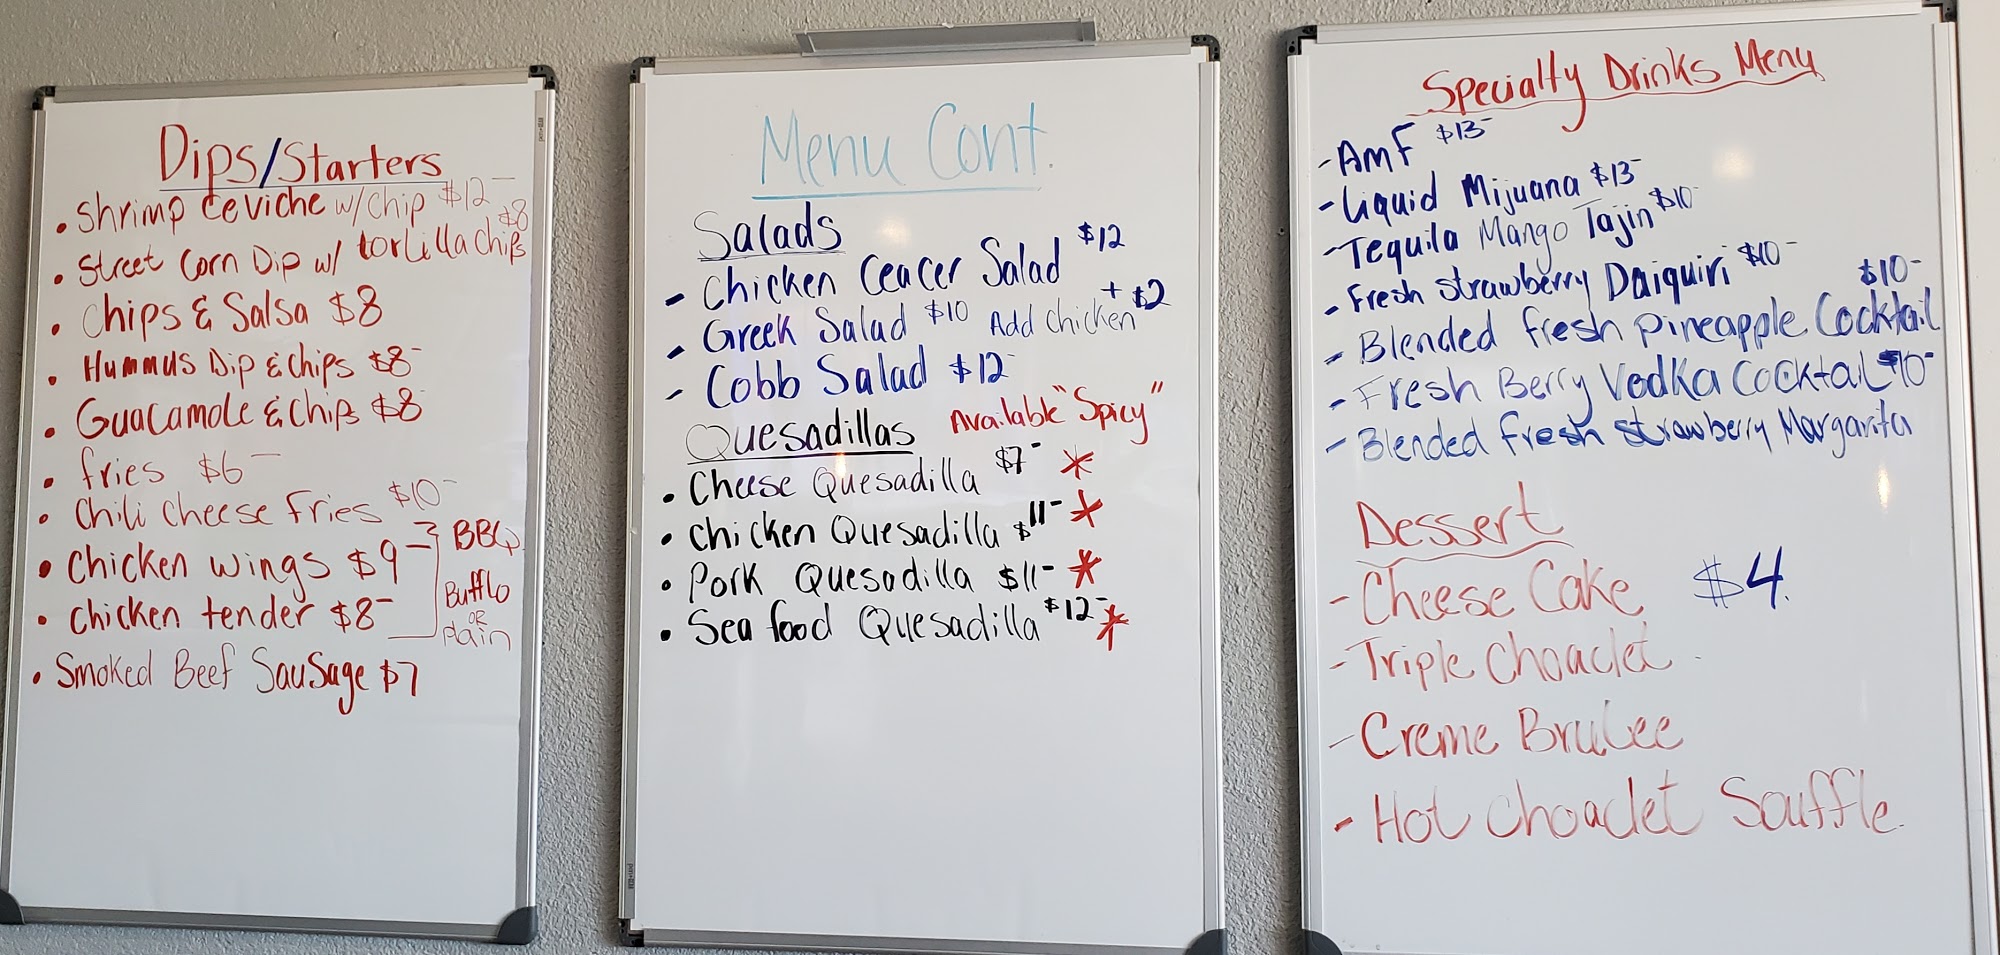 Dips/Starters
• Shrimp Ceviche w/chip $12-
• Street Corn Dip w/ tortilla chips $8
• Chips & Salsa $8
• Hummus Dip & Chips $8-
• Guacamole & Chips $8-
• fries $6-
• Chili Cheese Fries $10-
• Chicken wings $9- BBQ
Bufflo
• Chicken tender $8- OR
plain
• Smoked Beef Sausage $7
Menu Cont.
Salads
- Chicken Ceacer Salad $12
- Greek Salad $10 Add Chicken + $2
- Cobb Salad $12-
Quesadillas Available "Spicy"
• Cheese Quesadilla $7- *
• Chicken Quesadilla $11- *
• Pork Quesadilla $11- *
• Sea food Quesadilla $12- *
Specialty Drinks Menu
- AMF $13-
- Liquid Mijuana $13-
- Tequila Mango Tajin $10-
- Fresh Strawberry Daiquiri $10-
- Blended fresh pineapple Cocktail $10-
- Fresh Berry Vodka Cocktail $10-
- Blended fresh strawberry Margarita
Dessert
- Cheese Cake $4.
- Triple Choaclet
- Creme Brulee
- Hot Choaclet Souffle